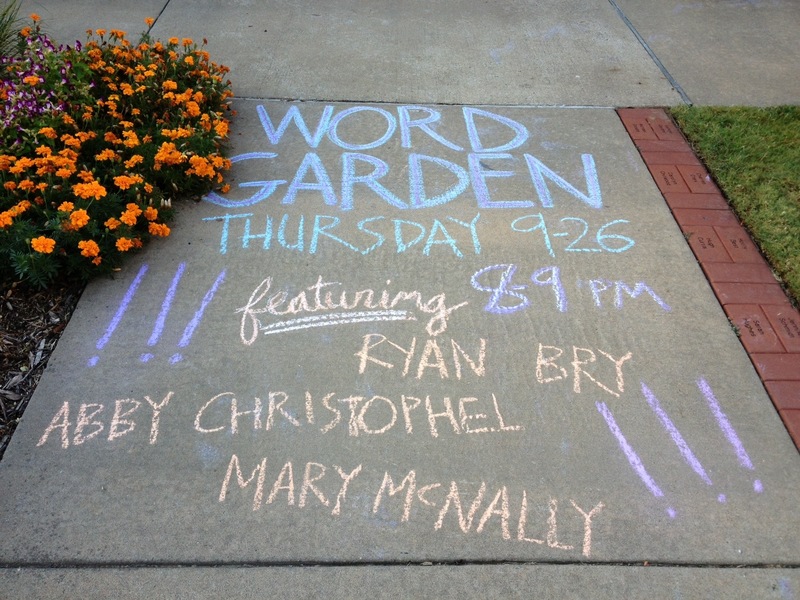 WORD
GARDEN
THURSDAY 9-26
!!! featuring 8-9 PM
RYAN BRY
ABBY CHRISTOPHEL !!!
MARY MCNALLY